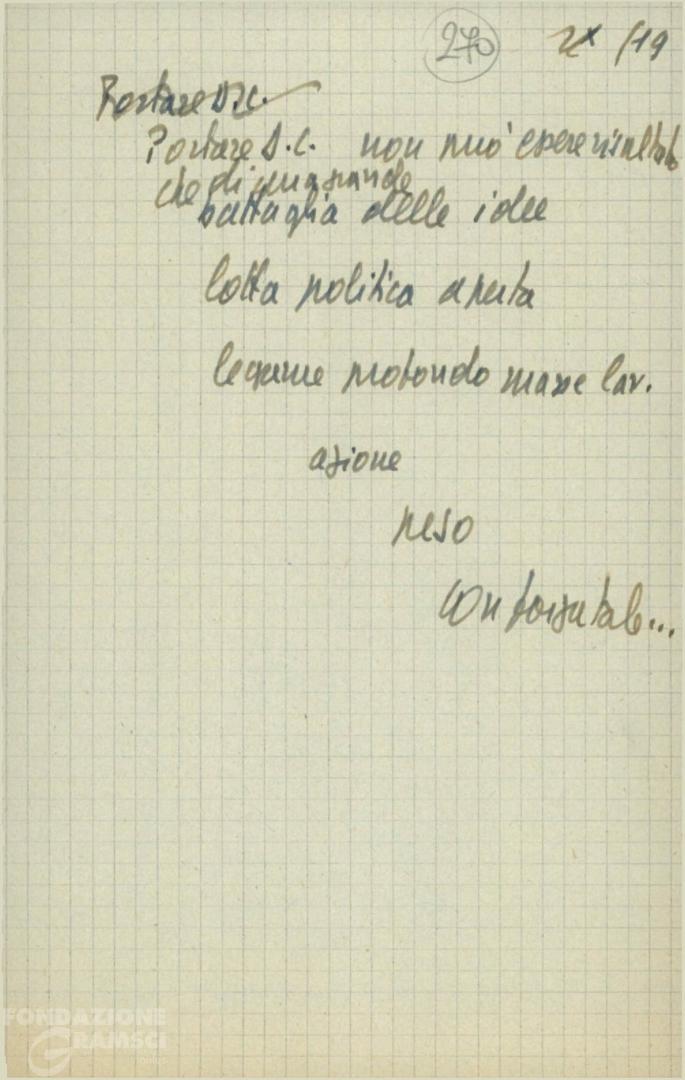 270 /19
Portare D.C.
Portare D.C. non può essere risultato
che di una grande
battaglia delle idee
lotta politica aperta
legame profondo masse lav.
azione
peso
con forza tale...
FONDAZIONE
GRAMSCI